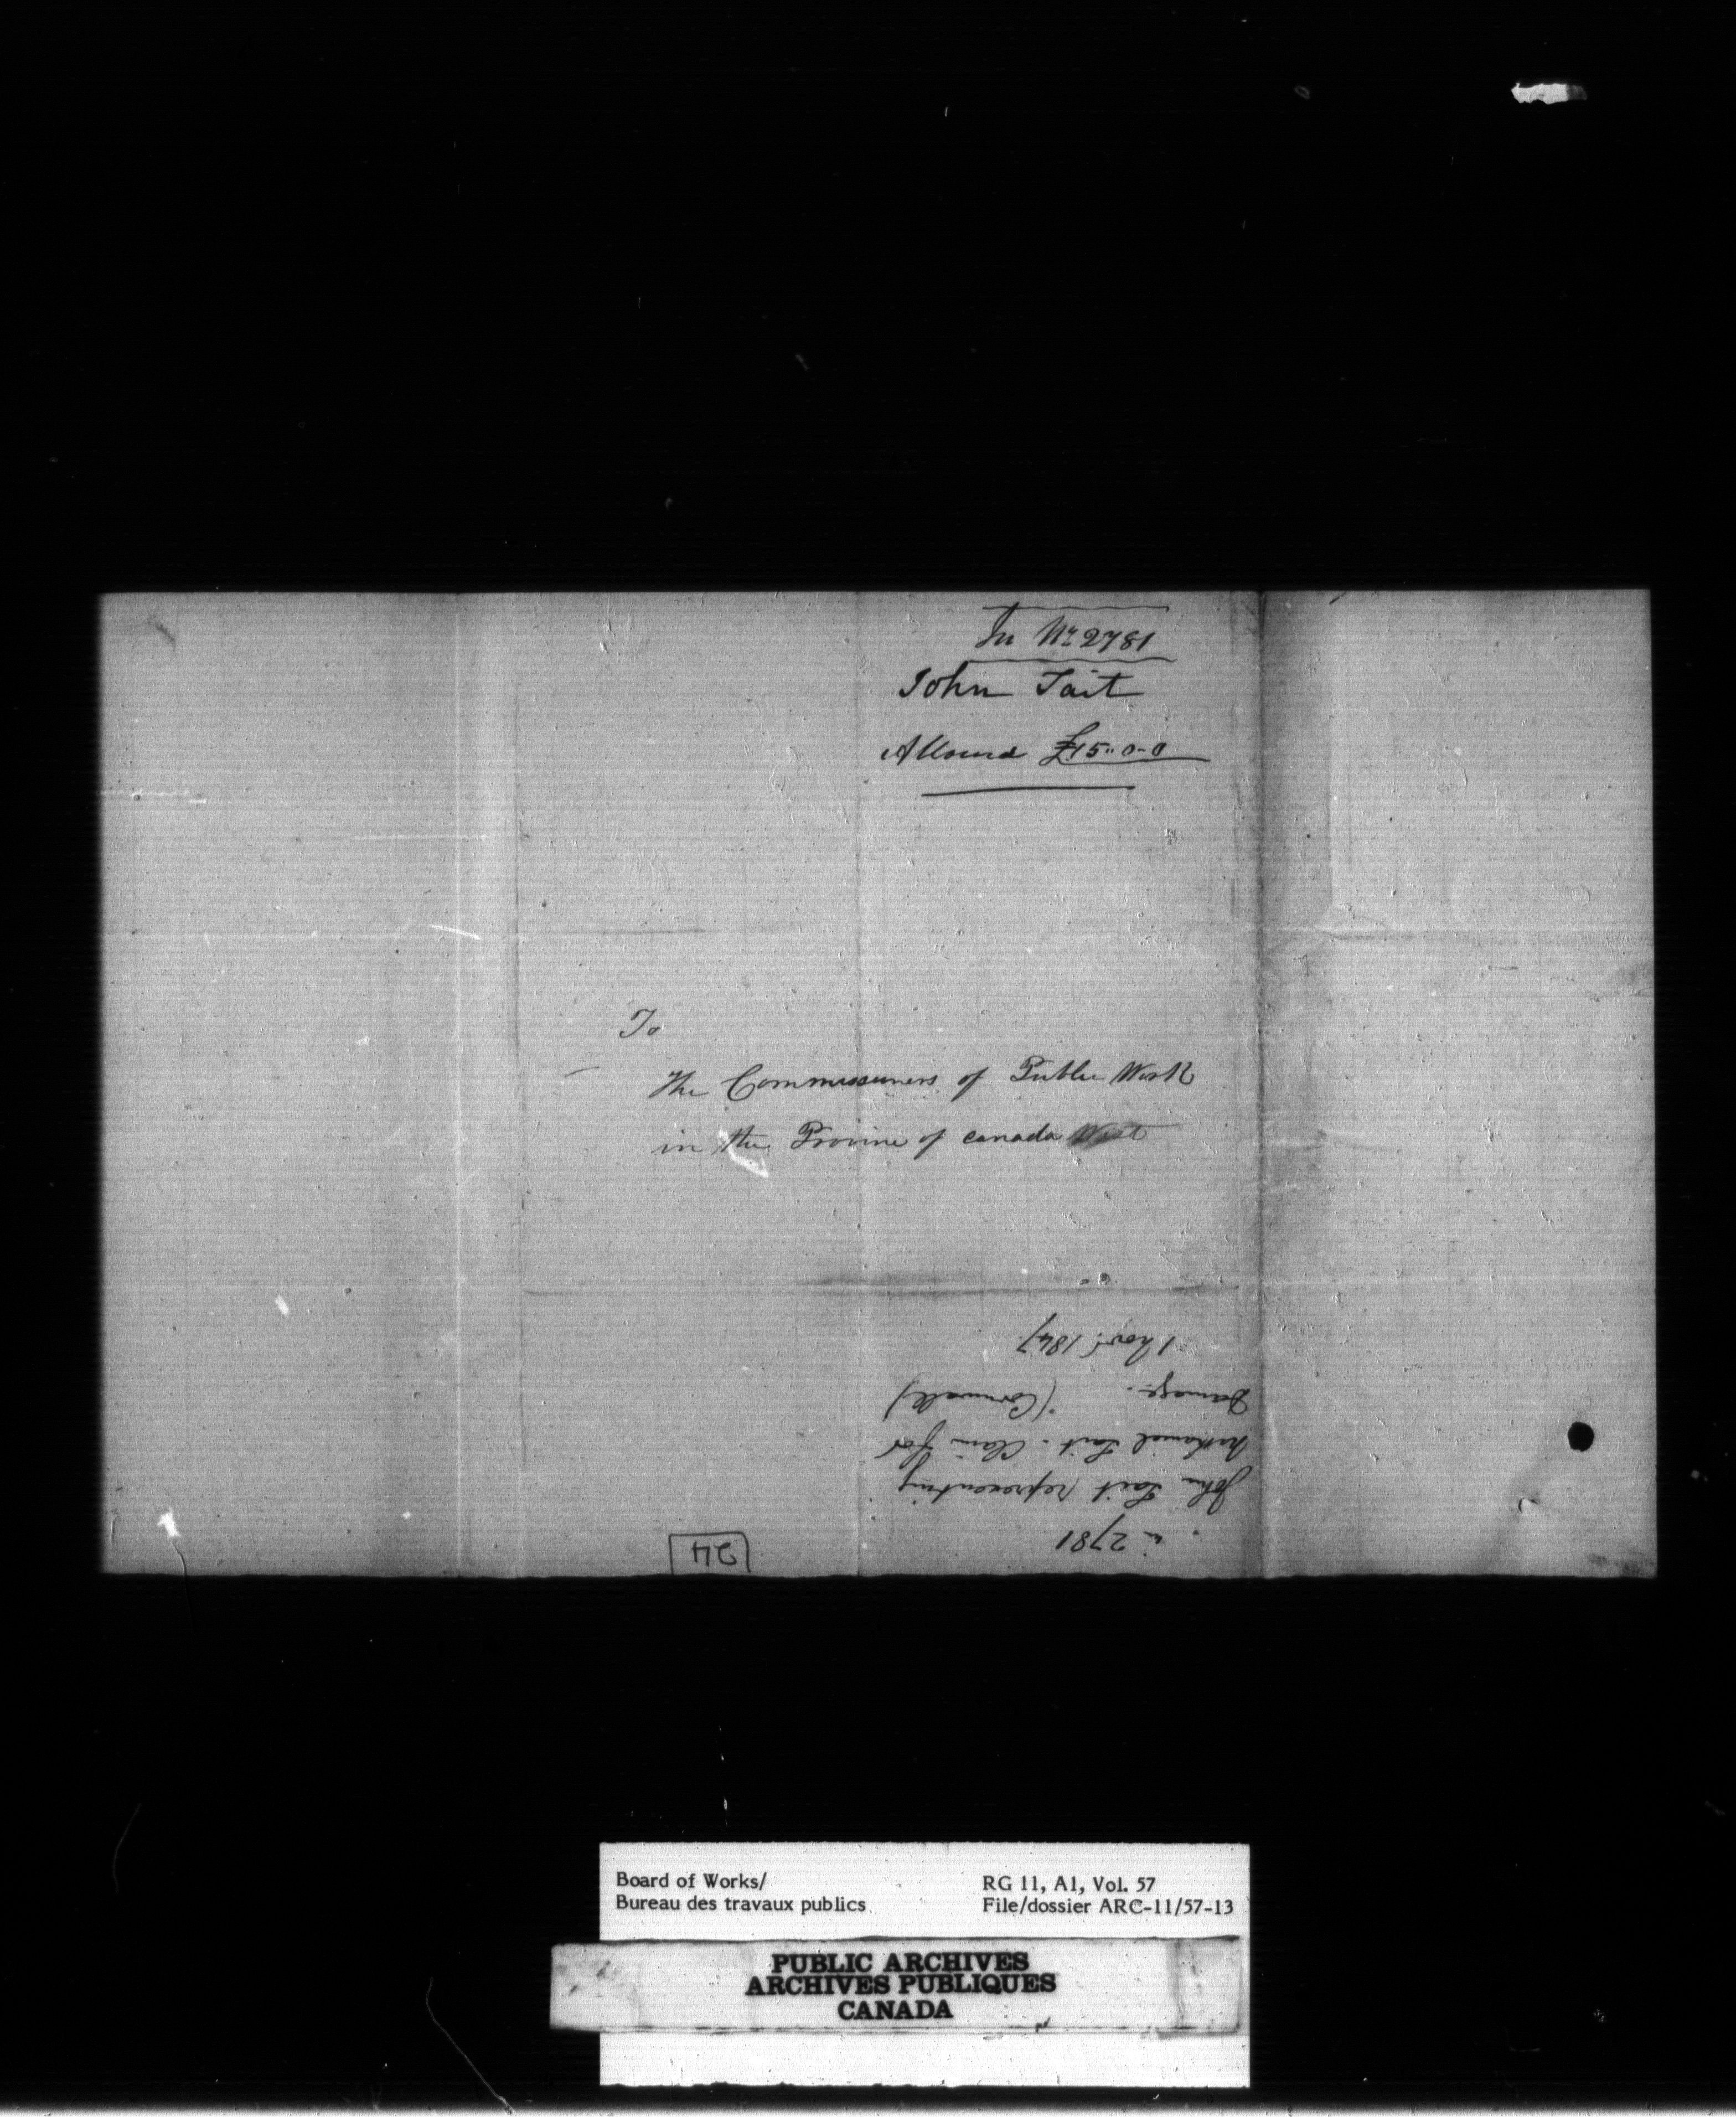 In No 2781
John Tait
Allowed £15"0-0
To
The Commissioners of Public Work
in the Provine of Canada West
2781
John Tait representing
Nathaniel Tait - Claim for
Damage - (Cornwall)
1 Novr. 1847
24
Board of Works/
Bureau des travaux publics
RG 11, A1, Vol. 57
File/dossier ARC-11/57-13
PUBLIC ARCHIVES
ARCHIVES PUBLIQUES
CANADA